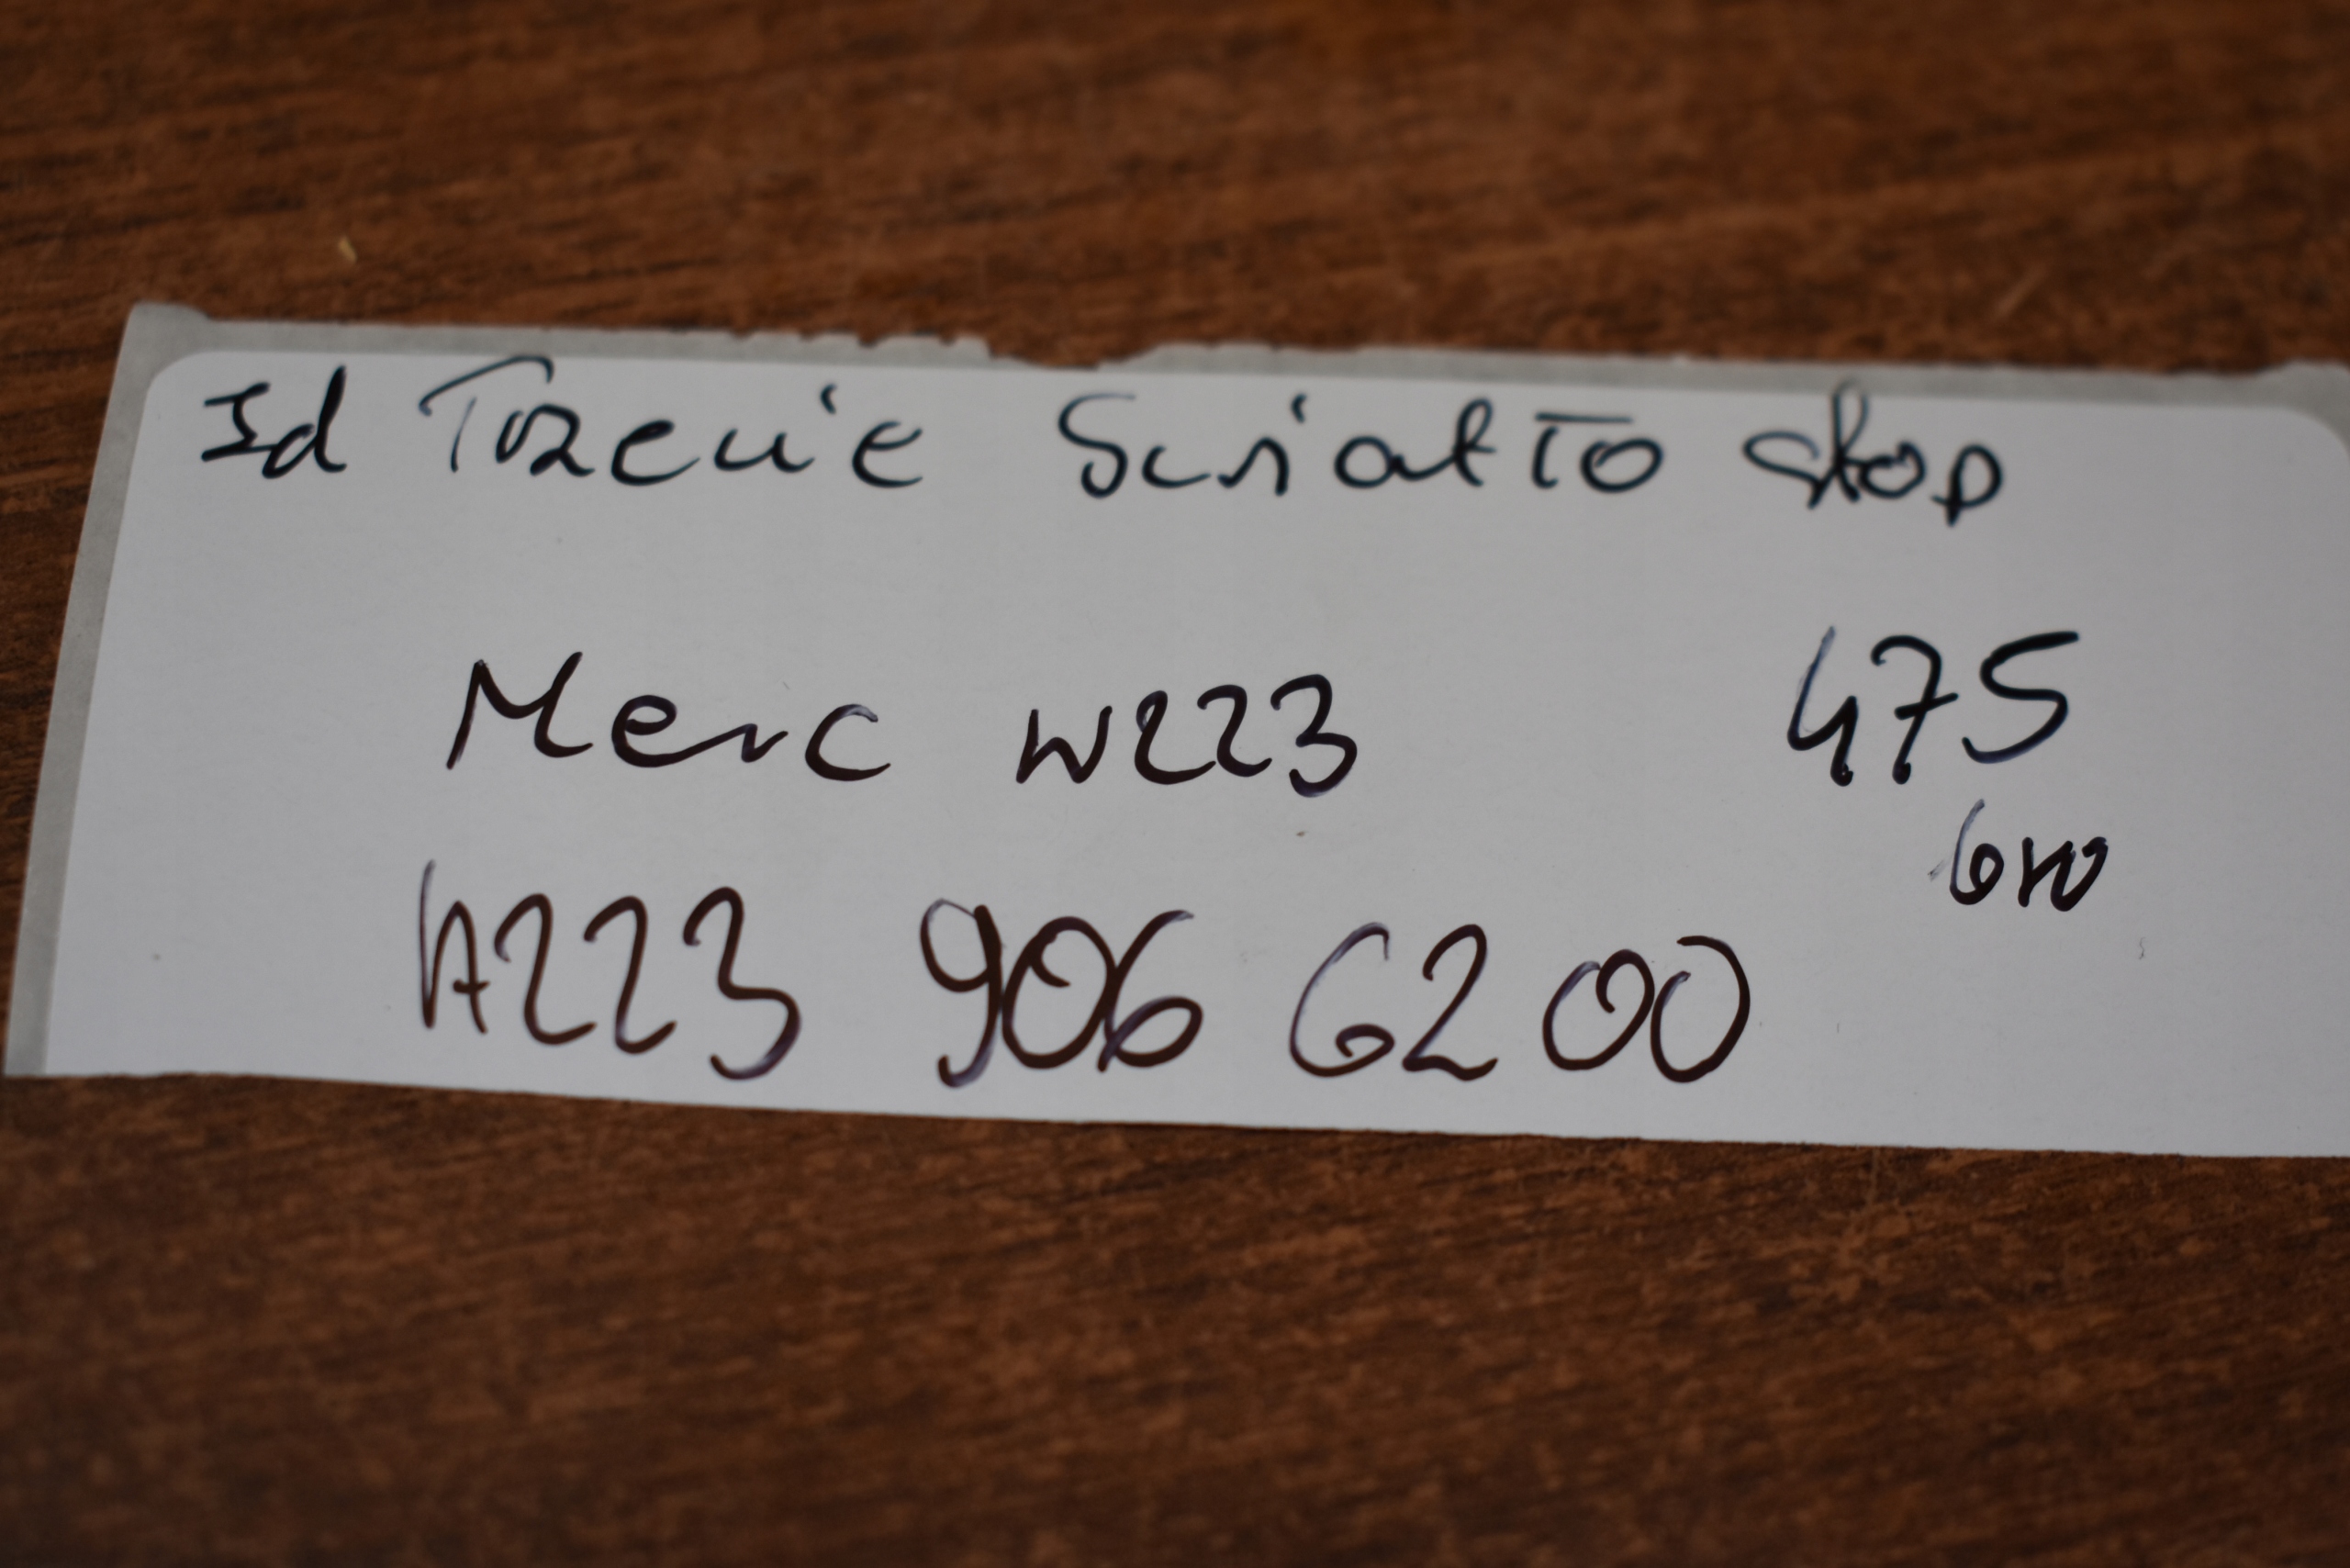 Id Trzecie Swiatło stop
Merc W223 475
A223 906 6200